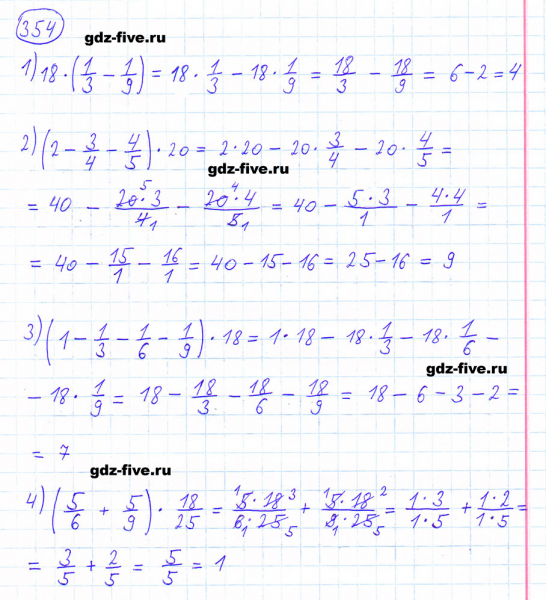 354
gdz-five.ru
1) 18 · (1/3 − 1/9) = 18 · 1/3 − 18 · 1/9 = 18/3 − 18/9 = 6 − 2 = 4
2) (2 − 3/4 − 4/5) · 20 = 2 · 20 − 20 · 3/4 − 20 · 4/5 =
gdz-five.ru
= 40 − 20⁵ · 3/4₁ − 20⁴ · 4/5₁ = 40 − 5 · 3/1 − 4 · 4/1 =
= 40 − 15/1 − 16/1 = 40 − 15 − 16 = 25 − 16 = 9
3) (1 − 1/3 − 1/6 − 1/9) · 18 = 1 · 18 − 18 · 1/3 − 18 · 1/6 −
gdz-five.ru
− 18 · 1/9 = 18 − 18/3 − 18/6 − 18/9 = 18 − 6 − 3 − 2 =
= 7
gdz-five.ru
4) (5/6 + 5/9) · 18/25 = ¹5 · 18³/6₁ · 25₅ + ¹5 · 18²/9₁ · 25₅ = 1 · 3/1 · 5 + 1 · 2/1 · 5 =
= 3/5 + 2/5 = 5/5 = 1